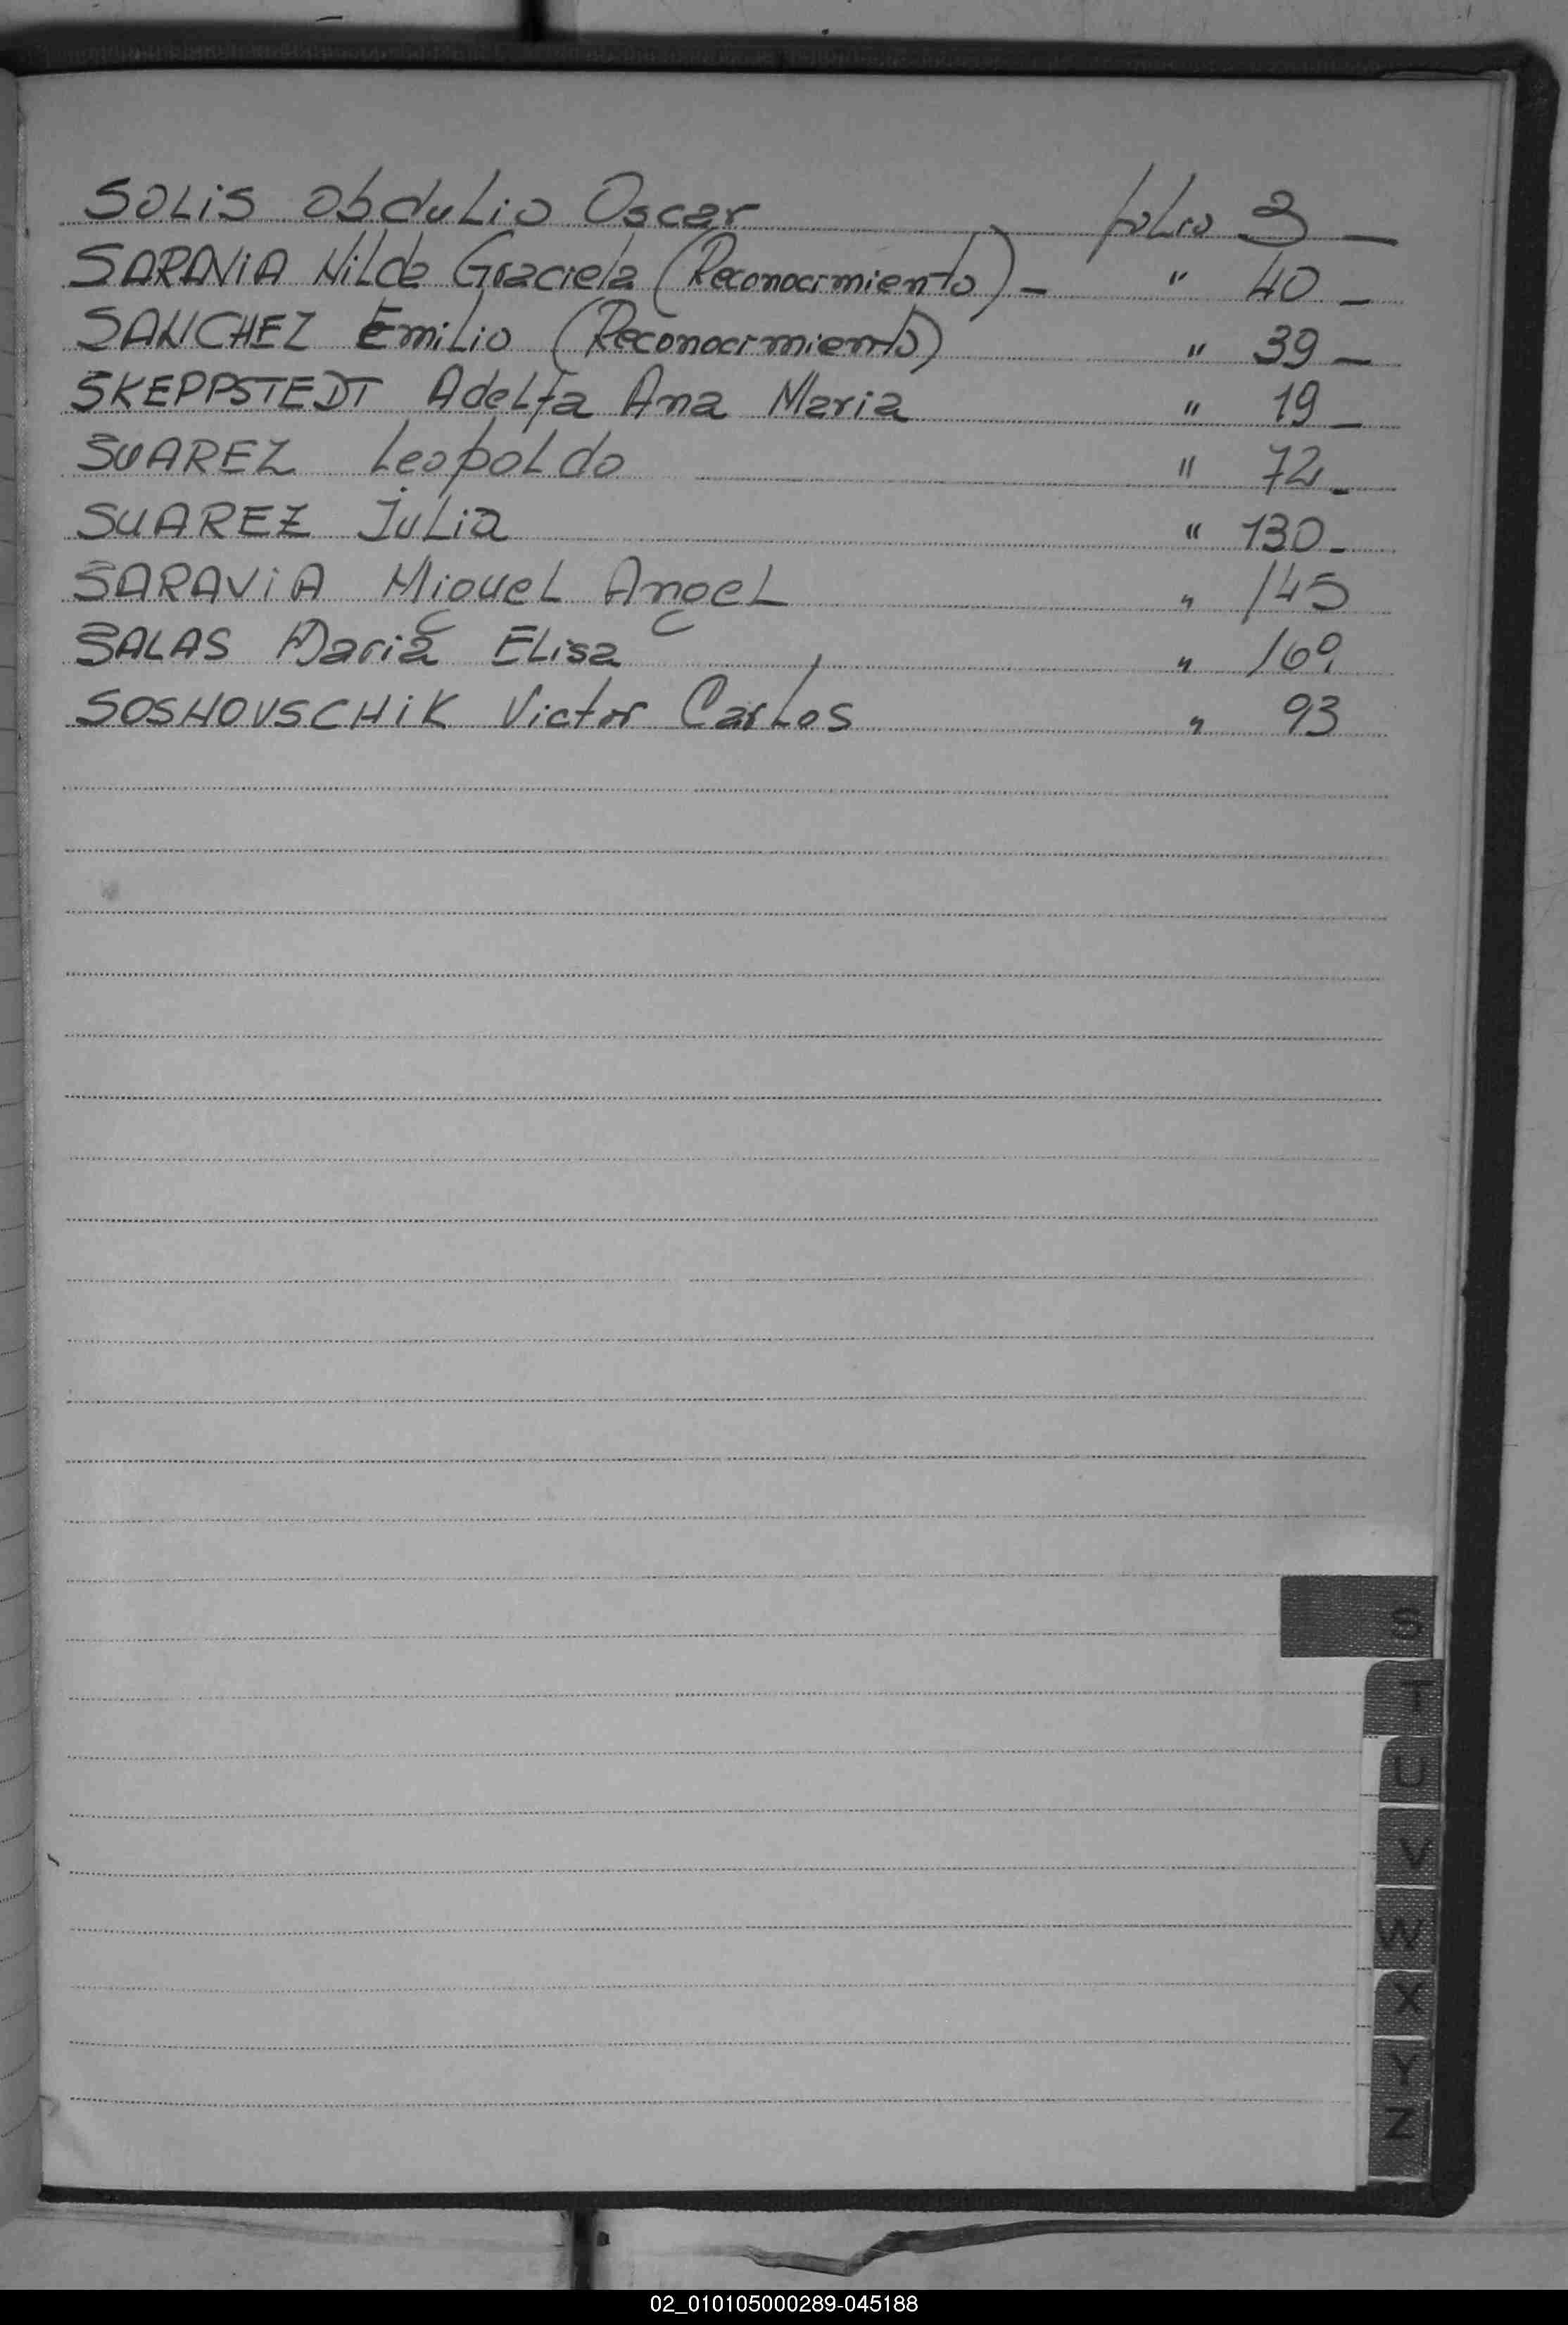 SOLiS Obdulio Oscar folio 3 —
SARAViA Nilda Graciela (Reconocimiento) — " 40 —
SANCHEZ Emilio (Reconocimiento) " 39 —
SKEPPSTEDT Adelfa Ana Maria " 19 —
SUAREZ Leopoldo " 72 —
SUAREZ Julia " 130 —
SARAViA Miguel Angel " 145
SALAS Maria Elisa "
SOSNOVSCHiK Victor Carlos " 93
S
T
U
V
W
X
Y
Z
02_010105000289-045188